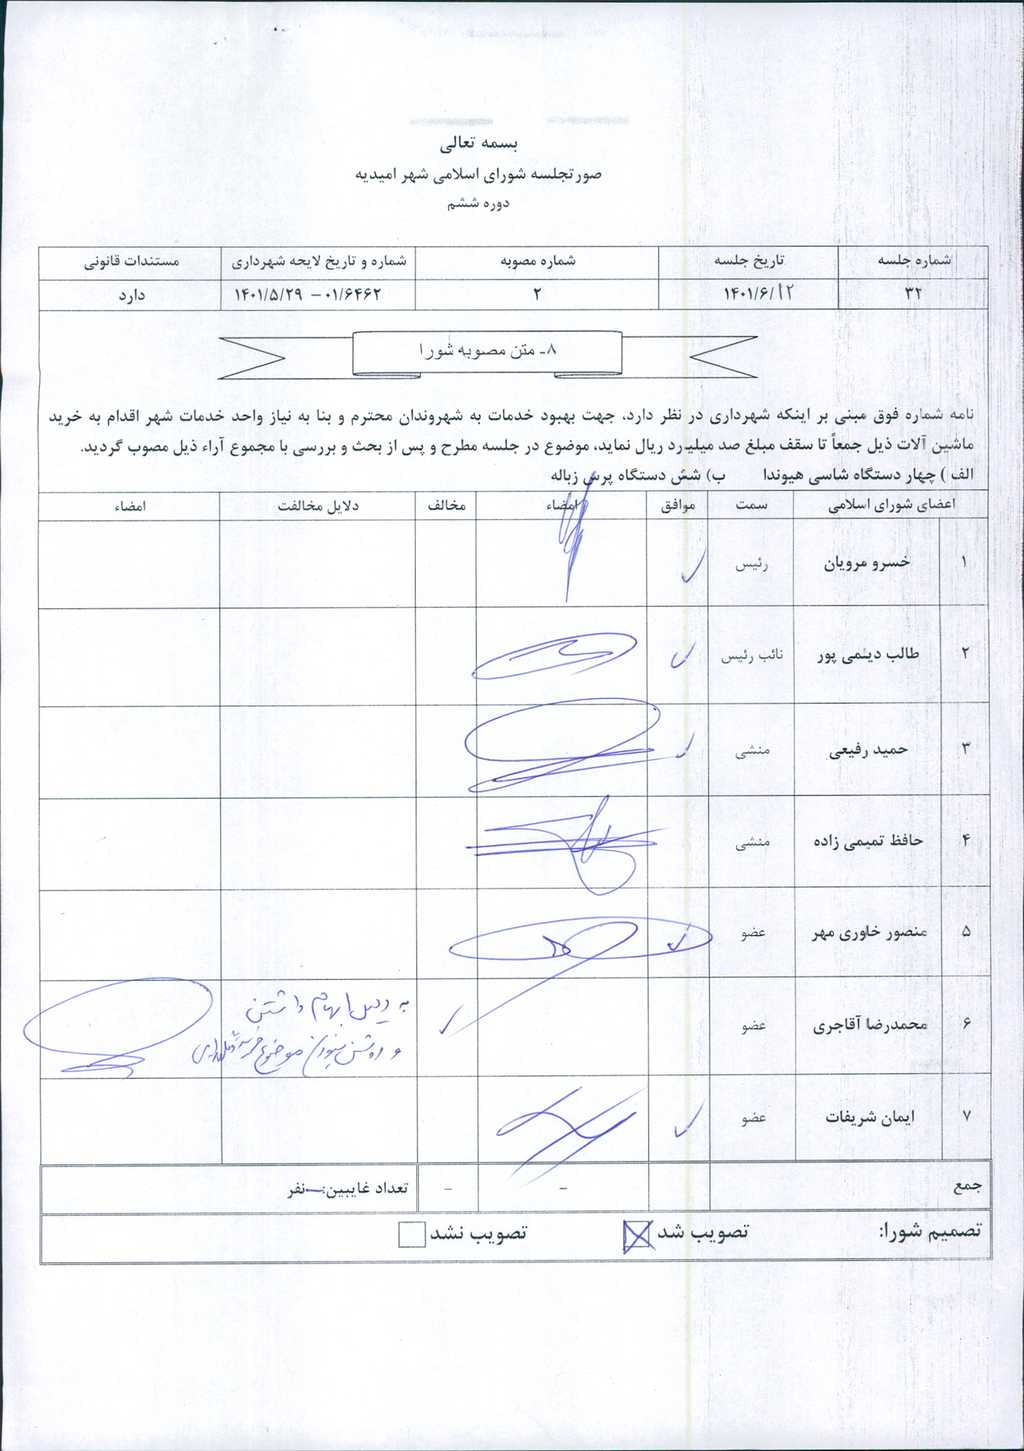 بسمه تعالی
صورتجلسه شورای اسلامی شهر امیدیه
دوره ششم
شماره جلسه تاریخ جلسه شماره مصوبه شماره و تاریخ لایحه شهرداری مستندات قانونی
۳۲ ۱۴۰۱/۶/۱۲ ۲ ۰۱/۶۴۶۲ – ۱۴۰۱/۵/۲۹ دارد
۸- متن مصوبه شورا
نامه شماره فوق مبنی بر اینکه شهرداری در نظر دارد، جهت بهبود خدمات به شهروندان محترم و بنا به نیاز واحد خدمات شهر اقدام به خرید
ماشین آلات ذیل جمعاً تا سقف مبلغ صد میلیارد ریال نماید، موضوع در جلسه مطرح و پس از بحث و بررسی با مجموع آراء ذیل مصوب گردید.
الف) چهار دستگاه شاسی هیوندا ب) شش دستگاه پرس زباله
اعضای شورای اسلامی سمت موافق امضاء مخالف دلایل مخالفت امضاء
۱ خسرو مرویان رئیس ✓
۲ طالب دیلمی پور نائب رئیس ✓
۳ حمید رفیعی منشی ✓
۴ حافظ تمیمی زاده منشی
۵ منصور خاوری مهر عضو ✓
۶ محمدرضا آقاجری عضو ✓ به دلیل ابهام داشتن
و روشن نبودن موضوع
۷ ایمان شریفات عضو ✓
جمع – – تعداد غایبین:–نفر
تصمیم شورا: تصویب شد ☒ تصویب نشد ☐